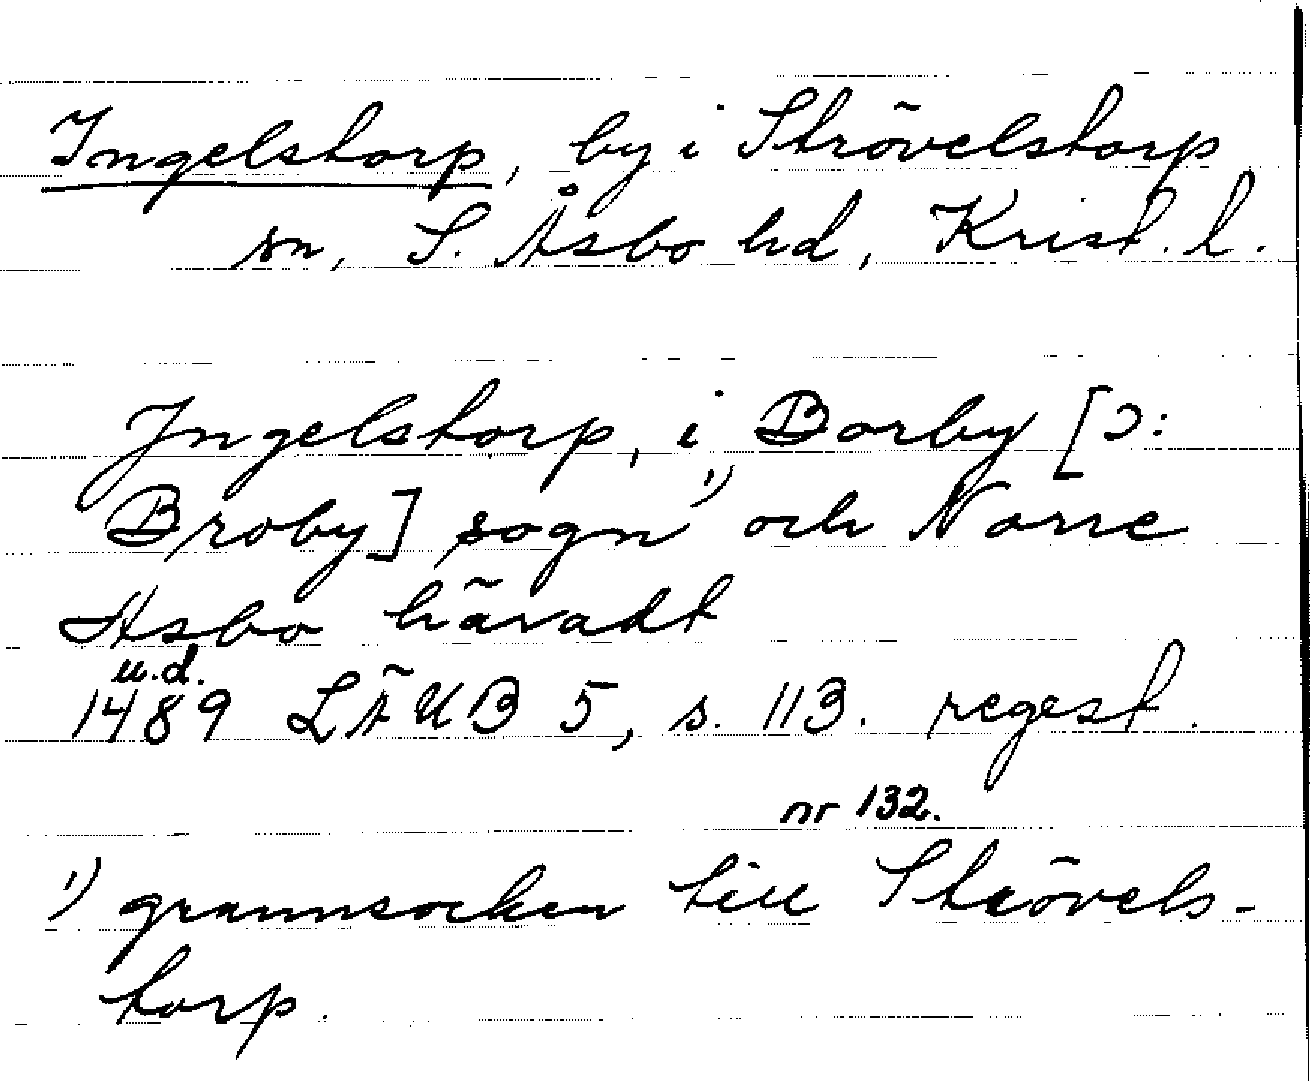 Ingelstorp, by i Strövelstorp
sn, S. Åsbo hd, Krist. l.
Jngelstorp, i Borby [ɔ:
Broby] sogn ¹⁾ och Norre
Asbo häradt
u.d.
1489 LÄUB 5, s. 113. regest.
nr 132.
¹⁾ grannsocken till Strövels-
torp.